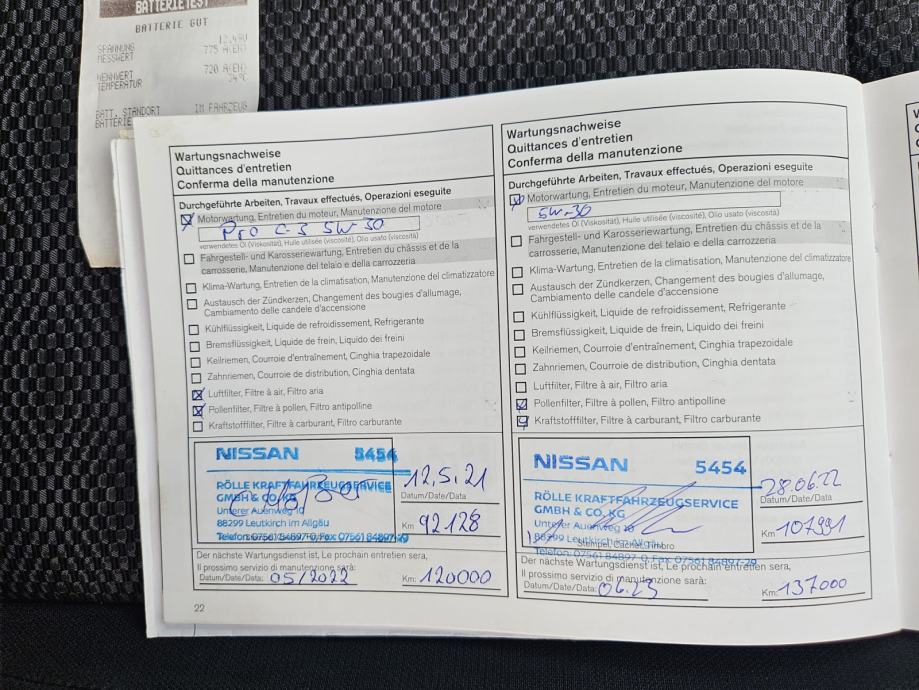 BATTERIETEST
BATTERIE GUT
SPANNUNG 12.49V
MESSWERT 775 A(EN)
NENNWERT 720 A(EN)
TEMPERATUR 34°C
BATT. STANDORT IM FAHRZEUG
Wartungsnachweise
Quittances d'entretien
Conferma della manutenzione
Durchgeführte Arbeiten, Travaux effectués, Operazioni eseguite
Motorwartung, Entretien du moteur, Manutenzione del motore
Pro C-3 5W-30
verwendetes Öl (Viskosität), Huile utilisée (viscosité), Olio usato (viscosità)
Fahrgestell- und Karosseriewartung, Entretien du châssis et de la
carrosserie, Manutenzione del telaio e della carrozzeria
Klima-Wartung, Entretien de la climatisation, Manutenzione del climatizzatore
Austausch der Zündkerzen, Changement des bougies d'allumage,
Cambiamento delle candele d'accensione
Kühlflüssigkeit, Liquide de refroidissement, Refrigerante
Bremsflüssigkeit, Liquide de frein, Liquido dei freini
Keilriemen, Courroie d'entraînement, Cinghia trapezoidale
Zahnriemen, Courroie de distribution, Cinghia dentata
Luftfilter, Filtre à air, Filtro aria
Pollenfilter, Filtre à pollen, Filtro antipolline
Kraftstofffilter, Filtre à carburant, Filtro carburante
NISSAN 5454
RÖLLE KRAFTFAHRZEUGSERVICE
GMBH & CO. KG
Unterer Auenweg 10
88299 Leutkirch im Allgäu
Telefon 07561 84897-0, Fax 07561 84897-29
12.5.21
Datum/Date/Data
Km 92128
Der nächste Wartungsdienst ist, Le prochain entretien sera,
Il prossimo servizio di manutenzione sarà:
Datum/Date/Data: 05/2022 Km: 120000
22
Wartungsnachweise
Quittances d'entretien
Conferma della manutenzione
Durchgeführte Arbeiten, Travaux effectués, Operazioni eseguite
Motorwartung, Entretien du moteur, Manutenzione del motore
5W-30
verwendetes Öl (Viskosität), Huile utilisée (viscosité), Olio usato (viscosità)
Fahrgestell- und Karosseriewartung, Entretien du châssis et de la
carrosserie, Manutenzione del telaio e della carrozzeria
Klima-Wartung, Entretien de la climatisation, Manutenzione del climatizzatore
Austausch der Zündkerzen, Changement des bougies d'allumage,
Cambiamento delle candele d'accensione
Kühlflüssigkeit, Liquide de refroidissement, Refrigerante
Bremsflüssigkeit, Liquide de frein, Liquido dei freini
Keilriemen, Courroie d'entraînement, Cinghia trapezoidale
Zahnriemen, Courroie de distribution, Cinghia dentata
Luftfilter, Filtre à air, Filtro aria
Pollenfilter, Filtre à pollen, Filtro antipolline
Kraftstofffilter, Filtre à carburant, Filtro carburante
NISSAN 5454
RÖLLE KRAFTFAHRZEUGSERVICE
GMBH & CO. KG
Unterer Auenweg 10
88299 Leutkirch im Allgäu
Stempel, Cachet, Timbro
Telefon 07561 84897-0, Fax 07561 84897-29
28.06.22
Datum/Date/Data
Km 107991
Der nächste Wartungsdienst ist, Le prochain entretien sera,
Il prossimo servizio di manutenzione sarà:
Datum/Date/Data: 06.23 Km: 137000